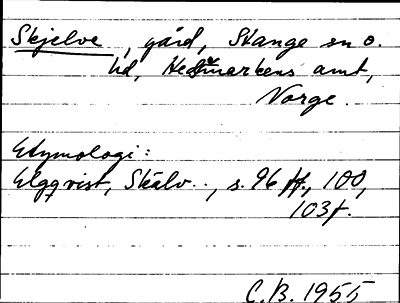 Skjelve, gård, Stange sn o.
hd, Hedmarkens amt,
Norge.
Etymologi:
Elgqvist, Skälv.., s. 96 ff., 100,
103f.
C.B. 1955